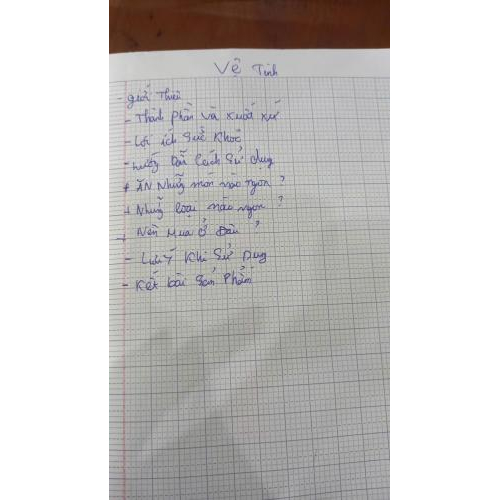 Vệ Tinh
- giới Thiệu
- Thành Phần và xuất xứ
- Lợi ích Sức Khỏe
- hướng Dẫn Cách Sử dụng
+ ĂN Những món nào ngon ?
+ Những loại nào ngon ?
+ Nên Mua Ở Đâu ?
- Lưu ý Khi Sử Dụng
- Kết bài Sản Phẩm